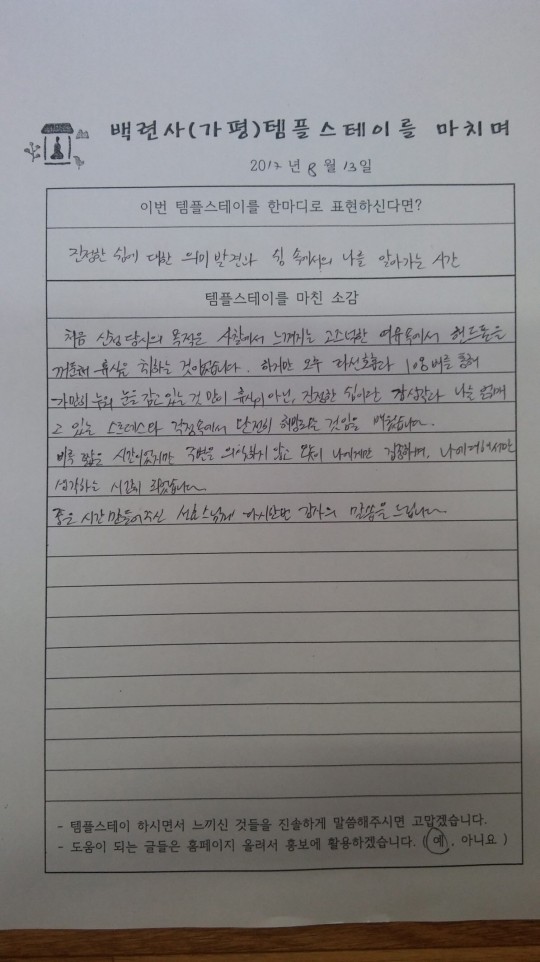 백련사(가평)템플스테이를 마치며
2017 년 8 월 13 일
이번 템플스테이를 한마디로 표현하신다면?
진정한 쉼에 대한 의미 발견과 쉼 속에서의 나를 알아가는 시간
템플스테이를 마친 소감
처음 신청 당시의 목적은 사찰에서 느껴지는 고즈넉한 여유속에서 핸드폰을
꺼둔채 휴식을 취하는 것이었습니다. 하지만 오후 108배를 통해
가만히 누워 눈을 감고 있는것 만이 휴식이 아닌, 진정한 쉼이란 잡생각과 나를
고 있는 스트레스와 걱정속에서 단전히 해방되는 것임을 배웠습니다.
비록 짧은 시간이었지만 주변을 의식하지 않고 오롯이 나에게만 집중하며, 나에 대해서만
생각하는 시간이 되었습니다.
좋은 시간 만들어주신 선효스님께 다시한번 감사의 말씀을 드립니다.
- 템플스테이 하시면서 느끼신 것들을 진솔하게 말씀해주시면 고맙겠습니다.
- 도움이 되는 글들은 홈페이지 올려서 홍보에 활용하겠습니다. ( 예 , 아니요 )